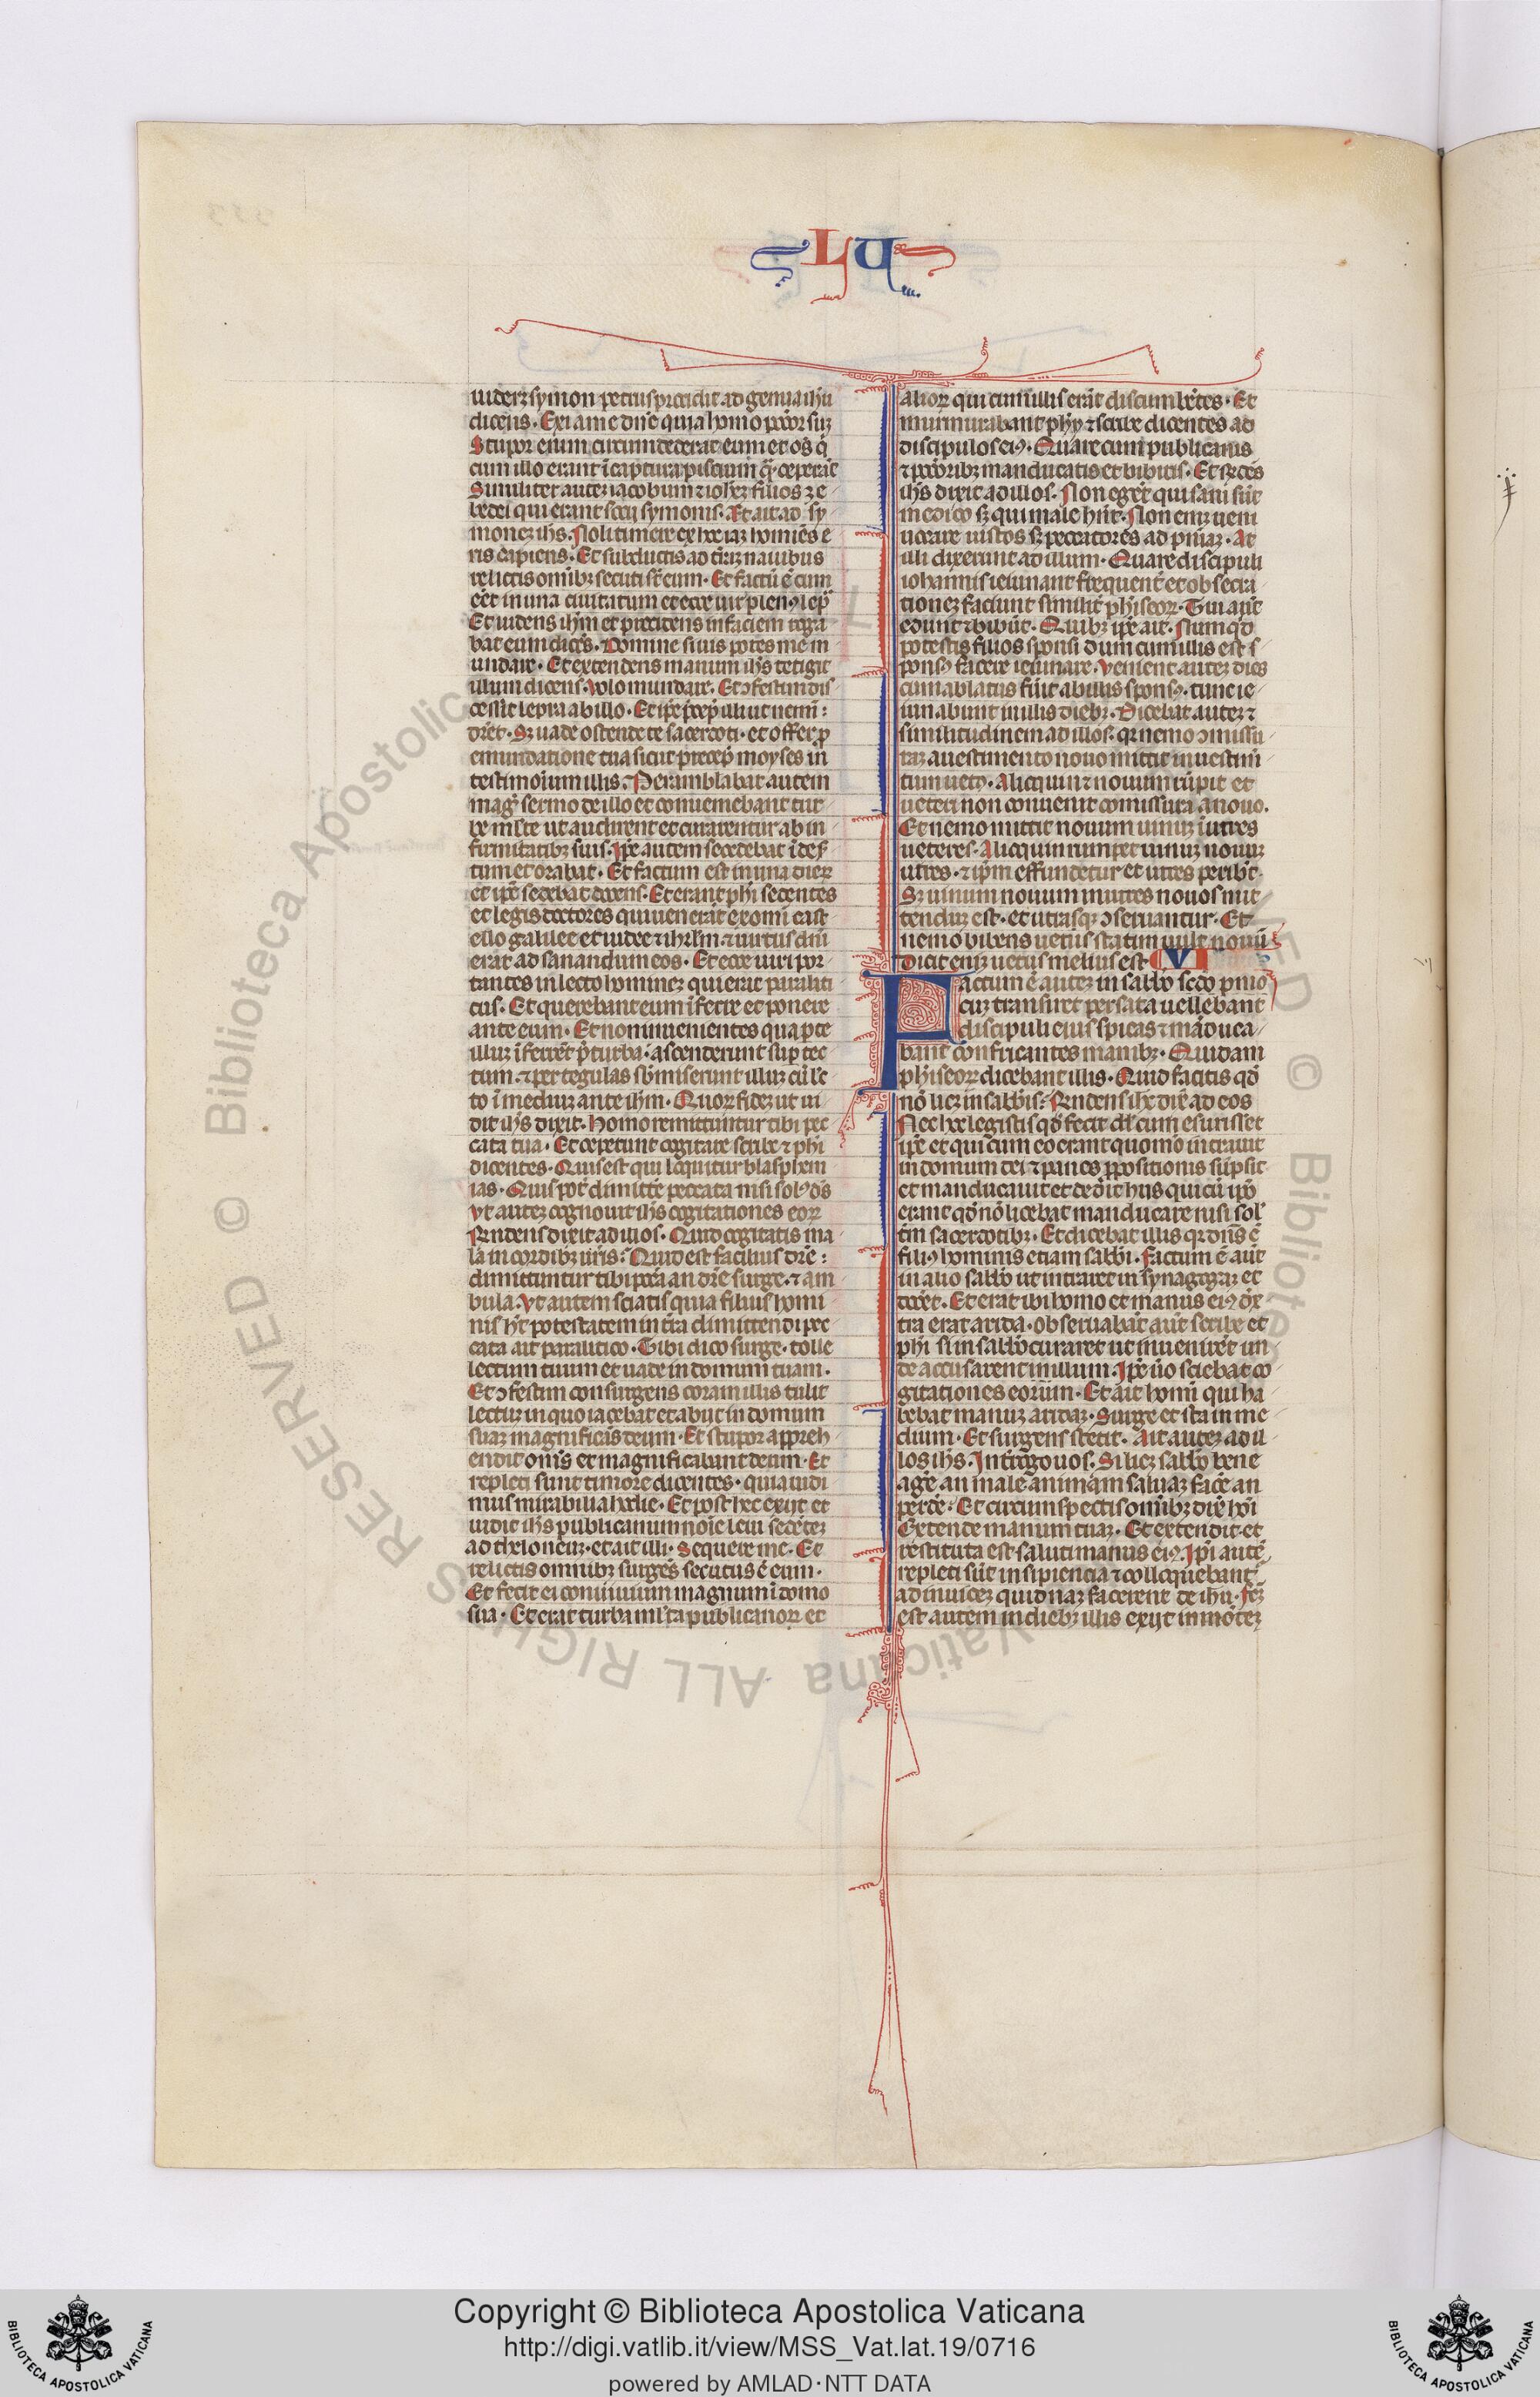 LU
uiderz symon petrus procidit ad genua ihu
dicens. Exi a me dne quia homo pccor suz
Stupor enim circumdederat eum et os q
cum illo erant i captura piscium q ceperat
Similiter autez iacobum ⁊ iohez filios ze
bedei qui erant socij symonis. Et ait ad sy
monez ihs. Noli timere ex hoc iaz homies e
ris capiens. Et subductis ad traz nauibus
relictis omibz secuti st eum. Et factu e cum
eet in una ciuitatum et ecce uir plenꝰ lepra
Et uidens ihm et procidens in faciem roga
bat eum dices. Domine si uis potes me m
undare. Et extendens manum ihs tetigit
illum dicens. Volo mundare. Et ꝯfestim dis
cessit lepra ab illo. Et ipe precep illi ut nemi
dret. Sz uade ostende te sacerdoti. et offer p
emundatione tua sicut precep moyses in
testimoium illis. Perambulabat autem
mag sermo de illo et conueniebant tur
be mlte ut audirent et curarentur ab in
firmitatibz suis. Ipe autem secedebat i des
tum et orabat. Et factum est in una dierz
et ipe sedebat docens. Et erant phi sedentes
et legis doctores qui uenerat ex omi cast
ello galilee et iudee ⁊ ihrlm ⁊ uirtus dni
erat ad sanandum eos. Et ecce uiri por
tantes in lecto hominez qui erat paraliti
cus. Et querebant eum iferre et ponere
ante eum. Et non inuenientes qua pte
illuz iferret p turba ascenderunt sup tec
tum. ⁊ per tegulas sbmiserunt illuz cu lec
to i mediuz ante ihm. Quorz fidez ut ui
dit ihs dixit. Homo remittuntur tibi pec
cata tua. Et ceperunt cogitare scribe ⁊ phi
dicentes. Quis est qui loquitur blasphem
ias. Quis pot dimitte peccata nisi solꝰ ds
Vt autez cognouit ihs cogitationes eorz
Rndens dixit ad illos. Quid cogitatis ma
la in cordibz uris. Quid est facilius dre
dimittuntur tibi pcca an dre surge. ⁊ am
bula. Vt autem sciatis quia filius homi
nis ht potestatem in tra dimittendi pec
cata ait paralitico. Tibi dico surge. tolle
lectum tuum et uade in domum tuam.
Et ꝯfestim consurgens coram illis tulit
lectuz in quo iacebat et abijt in domum
suaz magnificas deum. Et stupor appreh
endit omis et magnificabant deum. Et
repleti sunt timore dicentes. quia uidi
mus mirabilia hodie. Et post hec exijt et
uidit ihs publicanum noie leui sedetez
ad theloneuz. et ait illi. Sequere me. Et
relictis omnibz surges secutus e eum.
Et fecit ei conuiuium magnum i domo
sua. Et erat turba mlta publicanorz et
aliorz qui cum illis erat discumbetes. Et
murmurabant phy ⁊ scribe dicentes ad
discipulos eiꝰ. Quare cum publicanis
⁊ pccoribz manducatis et bibitis. Et rndens
ihs dixit ad illos. Non eget qui sani sut
medico sz qui male hnt. Non enim ueni
uocare iustos sz peccatores ad pniaz. At
illi dixerunt ad illum. Quare discipuli
iohannis ieiunant frequent et obsecra
tionez faciunt similit phiseorz. Tui aut
edunt ⁊ bibut. Quibz ipe ait. Numqd
potestis filios sponsi dum cum illis est s
ponsꝰ facere ieiunare. Venient autez dies
cum ablatus fuit ab illis sponsꝰ. tunc ie
iunabunt in illis diebz. Dicebat autez ⁊
similitudinem ad illos. qr nemo ꝯmissu
raz a uestimento nouo mittit in uestim
tum uetꝰ. Alioquin ⁊ nouum rupit et
ueteri non conuenit comissura a nouo.
Et nemo mittit nouum uinuz i utres
ueteres. Alioquin rumpet uinuz nouuz
utres. ⁊ ipm effundetur et utres peribut.
Sz uinum nouum in utres nouos mit
tenduz est. et utraqz ꝯseruantur. Et
nemo bibens uetus statim uult nouu
Dicit eniz uetus melius est VI
Factum e autez in sabbo secdo pmo
cuz transiret per sata uellebant
discipuli eius spicas ⁊ maduca
bant confricantes manibz. Quidam
phiseorz dicebant illis. Quid facitis qd
no licz in sabbis. Rndens ihc dix ad eos
Nec hoc legistis qd fecit dd cum esurisset
ipe et qui cum eo erant quomo intrauit
in domum dei ⁊ panes ppositionis supsit
et manducauit et dedit hijs qui cu ipo
erant qd no licebat manducare nisi sol
tm sacerdotibz. Et dicebat illis qr dns e
filiꝰ hominis etiam sabbi. Factum e aut
in alio sabbo ut intraret in synagogaz et
doceet. Et erat ibi homo et manus eiꝰ dex
tra erat arida. Obseruabat aut scribe et
phi si in sabbo curaret ut inueniret un
de accusarent illum. Ipe uo sciebat co
gitationes eorum. Et ait homi qui ha
bebat manuz aridaz. Surge et sta in me
dium. Et surgens stetit. Ait autez ad il
los ihs. Interrogo uos. Si licz sabbo bene
age an male. animam saluaz face an
perde. Et circumspectis omibz dix hoi
Extende manum tuaz. Et extendit. et
restituta est saluti manus eiꝰ. Ipi aute
repleti sut insipiencia ⁊ colloquebant
ad inuicez quidnaz facerent de ihu. Fcz
est autem in diebz illis exijt in motez
BIBLIOTECA APOSTOLICA VATICANA
Copyright © Biblioteca Apostolica Vaticana
http://digi.vatlib.it/view/MSS_Vat.lat.19/0716
powered by AMLAD·NTT DATA
BIBLIOTECA APOSTOLICA VATICANA
© Biblioteca Apostolica Vaticana ALL RIGHTS RESERVED